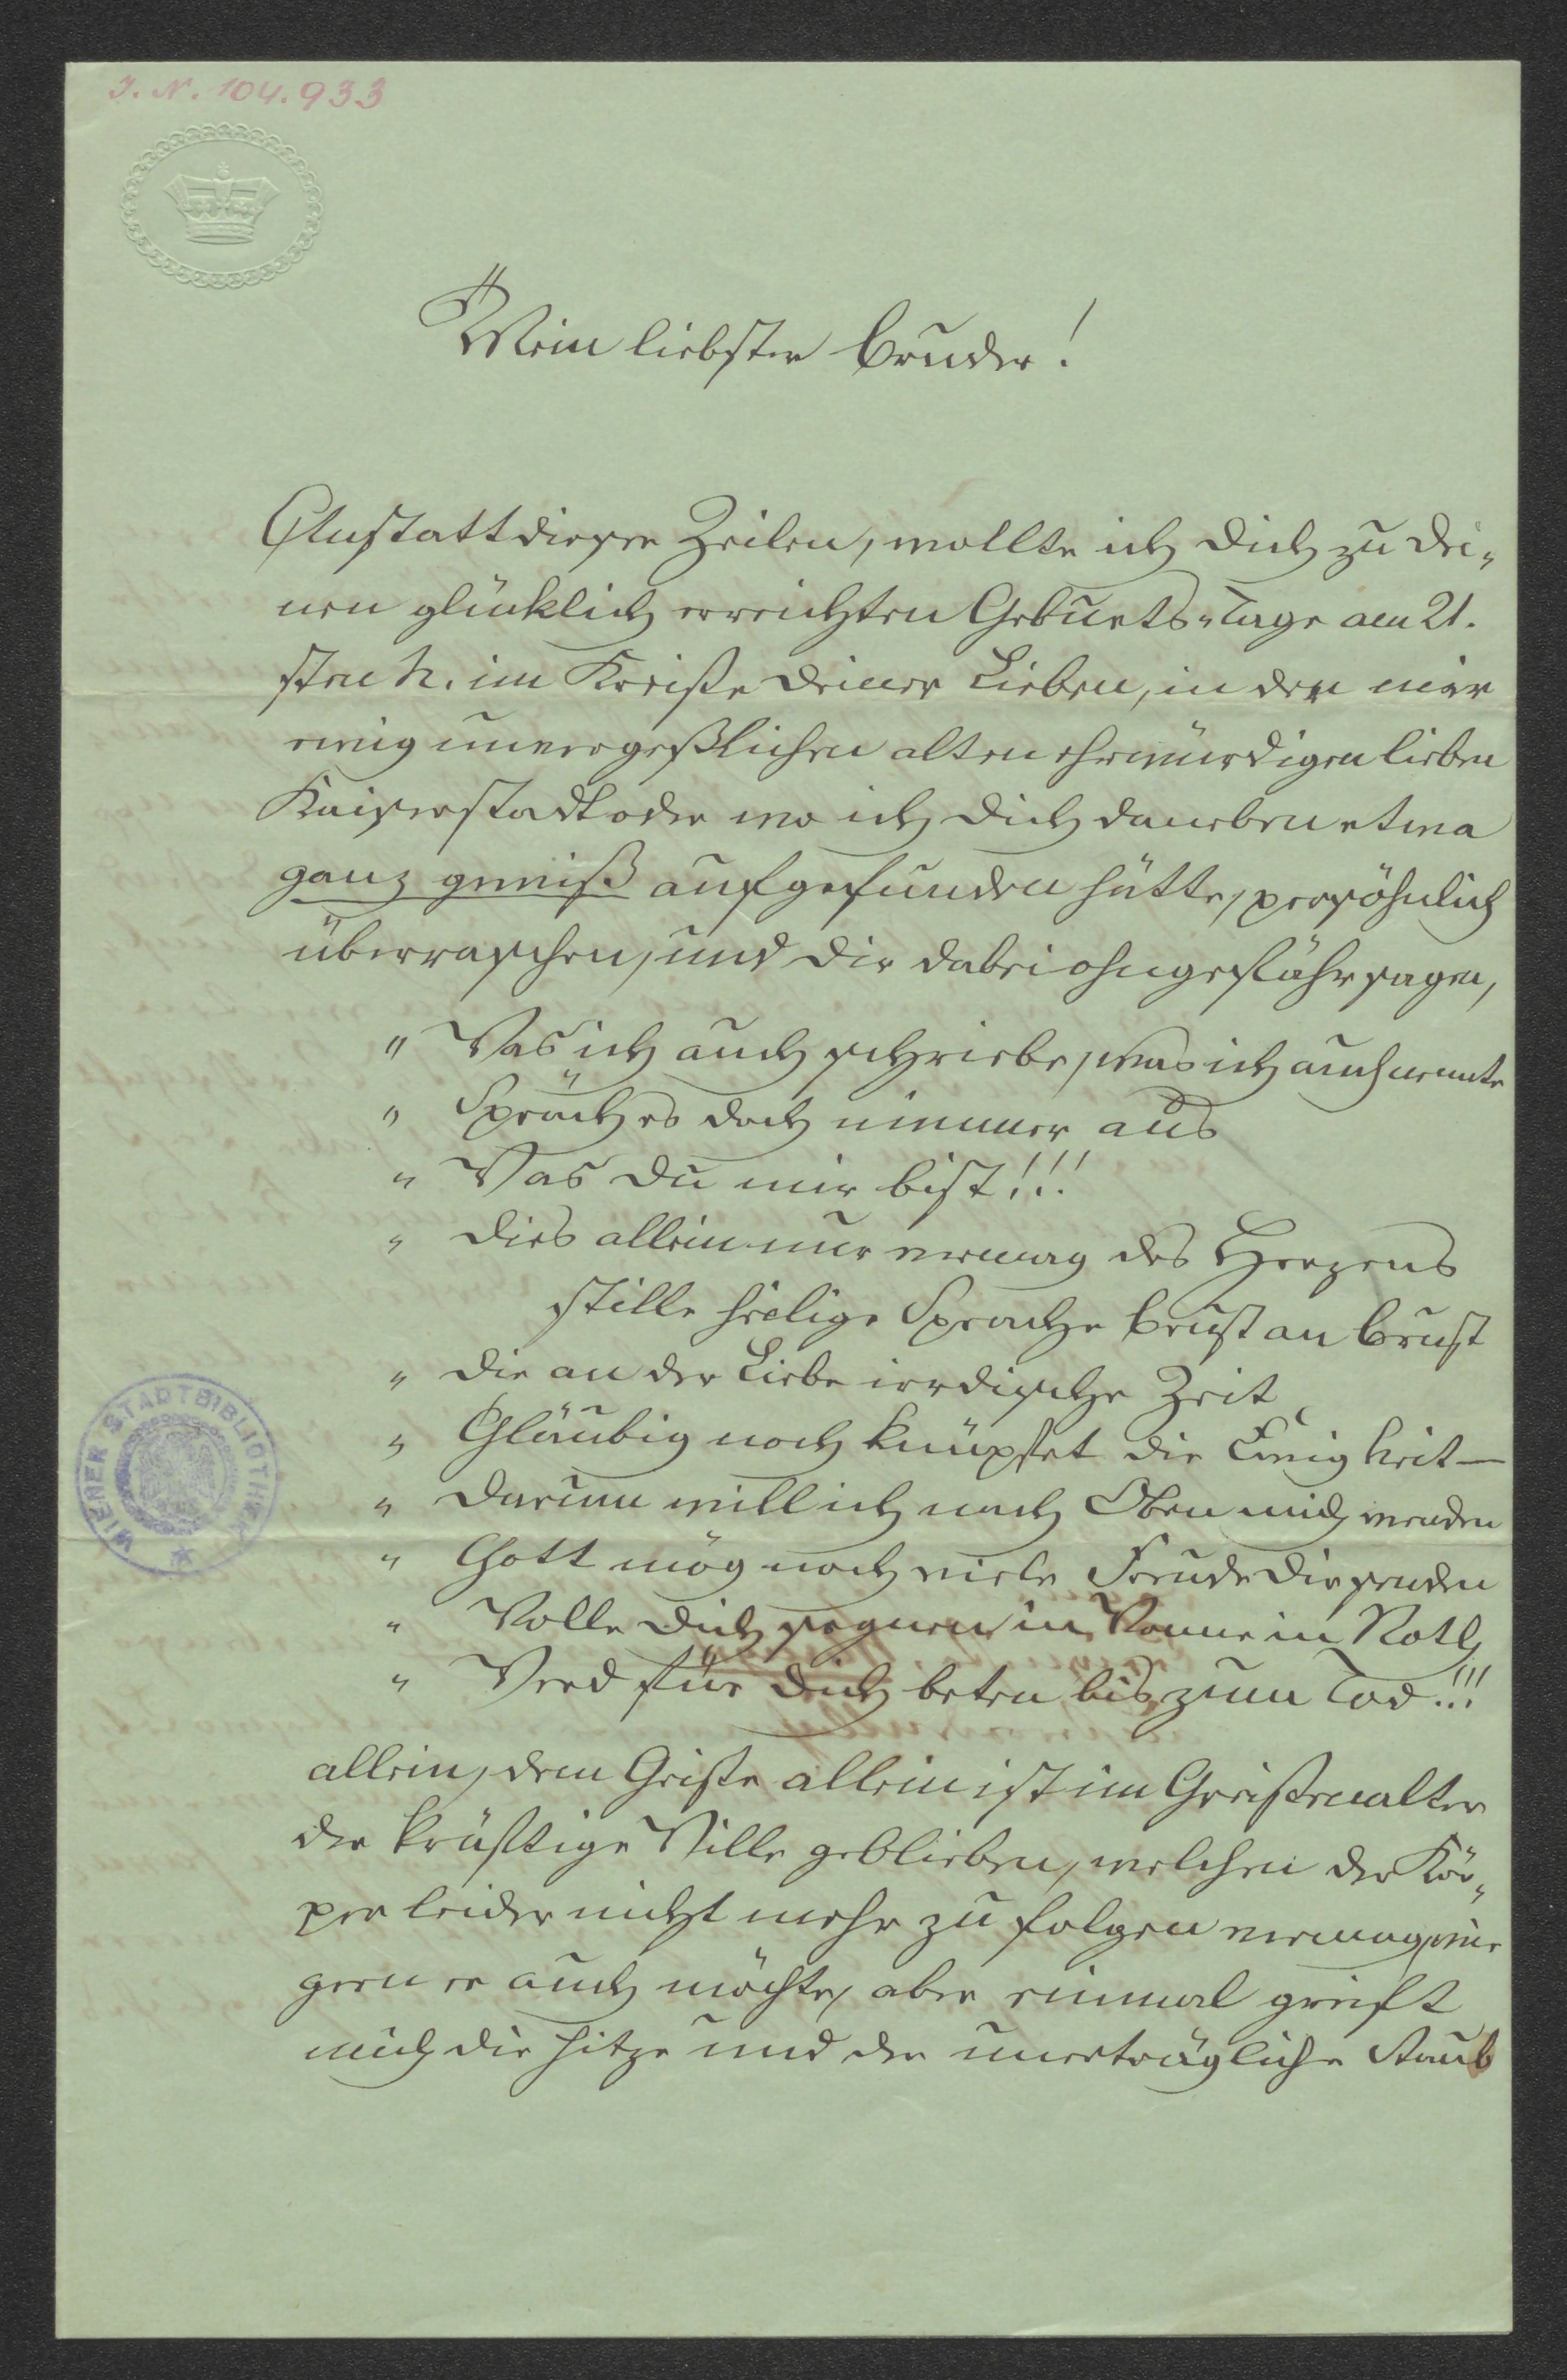 I. N. 104.933
Mein liebster Bruder!
Anstatt dieser Zeilen, wollte ich Dich zu Dei„
nen glücklich erreichten Geburts„Tage am 21.
sten h. im Kreiße Deiner Lieben, in der mir
ewig unvergeßlichen alten ehrwürdigen lieben
Kaiserstadt oder wo ich Dich daneben etwa
ganz gewiß aufgefunden hätte, persöhnlich
überraschen, und Dir dabei ohngefähr sagen,
„ Was ich auch schriebe, was ich auch nennte
„ Spräch es doch nimmer aus
„ Was Du mir bist!!!
„ Dies allein nur vermag des Herzens
stille heilige Sprache Brust an Brust
„ Die an der Liebe irrdische Zeit
„ Gläubig noch knüpfet die Ewigkeit—
„ Darum will ich nach Oben mich wenden
„ Gott mög noch viele Freude Dir senden
„ Wolle Dich segnen in Wonne in Noth
„ Werd für Dich beten bis zum Tod!!!
allein, dem Geiste allein ist im Greisenalter
der kräftige Wille geblieben, welchen der Kör„
per leider nicht mehr zu folgen vermag, wie
gern er auch möchte, aber einmal greift
mich die Hitze und der unerträgliche Staub
WIENER STADTBIBLIOTHEK